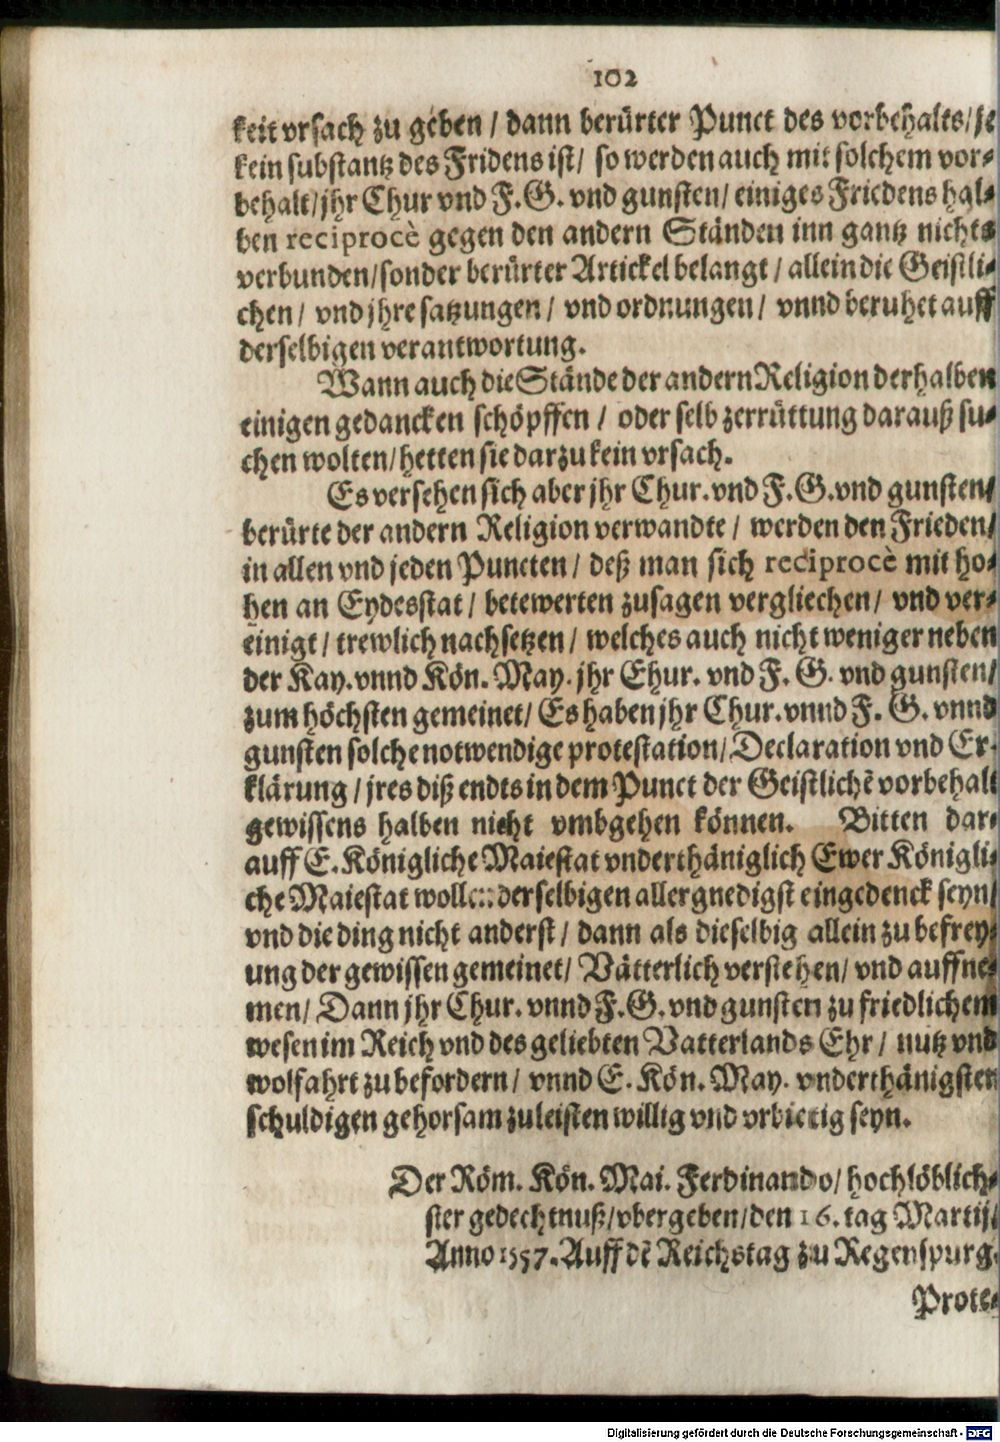 102
keit vrsach zu geben / dann berürter Punct des vorbehalts / je
kein substantz des Fridens ist / so werden auch mit solchem vor-
behalt / jhr Chur vnd F.G. vnd gunsten / einiges Friedens hal-
ben reciprocè gegen den andern Ständen inn gantz nichts
verbunden / sonder berürter Artickel belangt / allein die Geistli-
chen / vnd jhre satzungen / vnd ordnungen / vnnd beruhet auff
derselbigen verantwortung.
Wann auch die Stände der andern Religion derhalben
einigen gedancken schöpffen / oder selb zerrüttung darauß su-
chen wolten / hetten sie darzu kein vrsach.
Es versehen sich aber jhr Chur. vnd F.G. vnd gunsten /
berürte der andern Religion verwandte / werden den Frieden /
in allen vnd jeden Puncten / deß man sich reciprocè mit ho-
hen an Eydesstat / betewerten zusagen vergliechen / vnd ver-
einigt / trewlich nachsetzen / welches auch nicht weniger neben
der Kay. vnnd Kön. May. jhr Ehur. vnd F. G. vnd gunsten /
zum höchsten gemeinet / Es haben jhr Chur. vnnd F. G. vnnd
gunsten solche notwendige protestation / Declaration vnd Er-
klärung / jres diß endts in dem Punct der Geistlichẽ vorbehalt
gewissens halben nicht vmbgehen können. Bitten dar-
auff E. Königliche Maiestat vnderthäniglich Ewer Königli-
che Maiestat wollen derselbigen allergnedigst eingedenck seyn /
vnd die ding nicht anderst / dann als dieselbig allein zu befrey-
ung der gewissen gemeinet / Vätterlich verstehen / vnd auffne-
men / Dann jhr Chur. vnnd F.G. vnd gunsten zu friedlichem
wesen im Reich vnd des geliebten Vatterlands Ehr / nutz vnd
wolfahrt zu befordern / vnnd E. Kön. May. vnderthänigsten
schuldigen gehorsam zuleisten willig vnd vrbietig seyn.
Der Röm. Kön. Mai. Ferdinando / hochlöblich-
ster gedechtnuß / vbergeben / den 16. tag Martij /
Anno 1557. Auff dẽ Reichstag zu Regenspurg.
Prote-
Digitalisierung gefördert durch die Deutsche Forschungsgemeinschaft - DFG